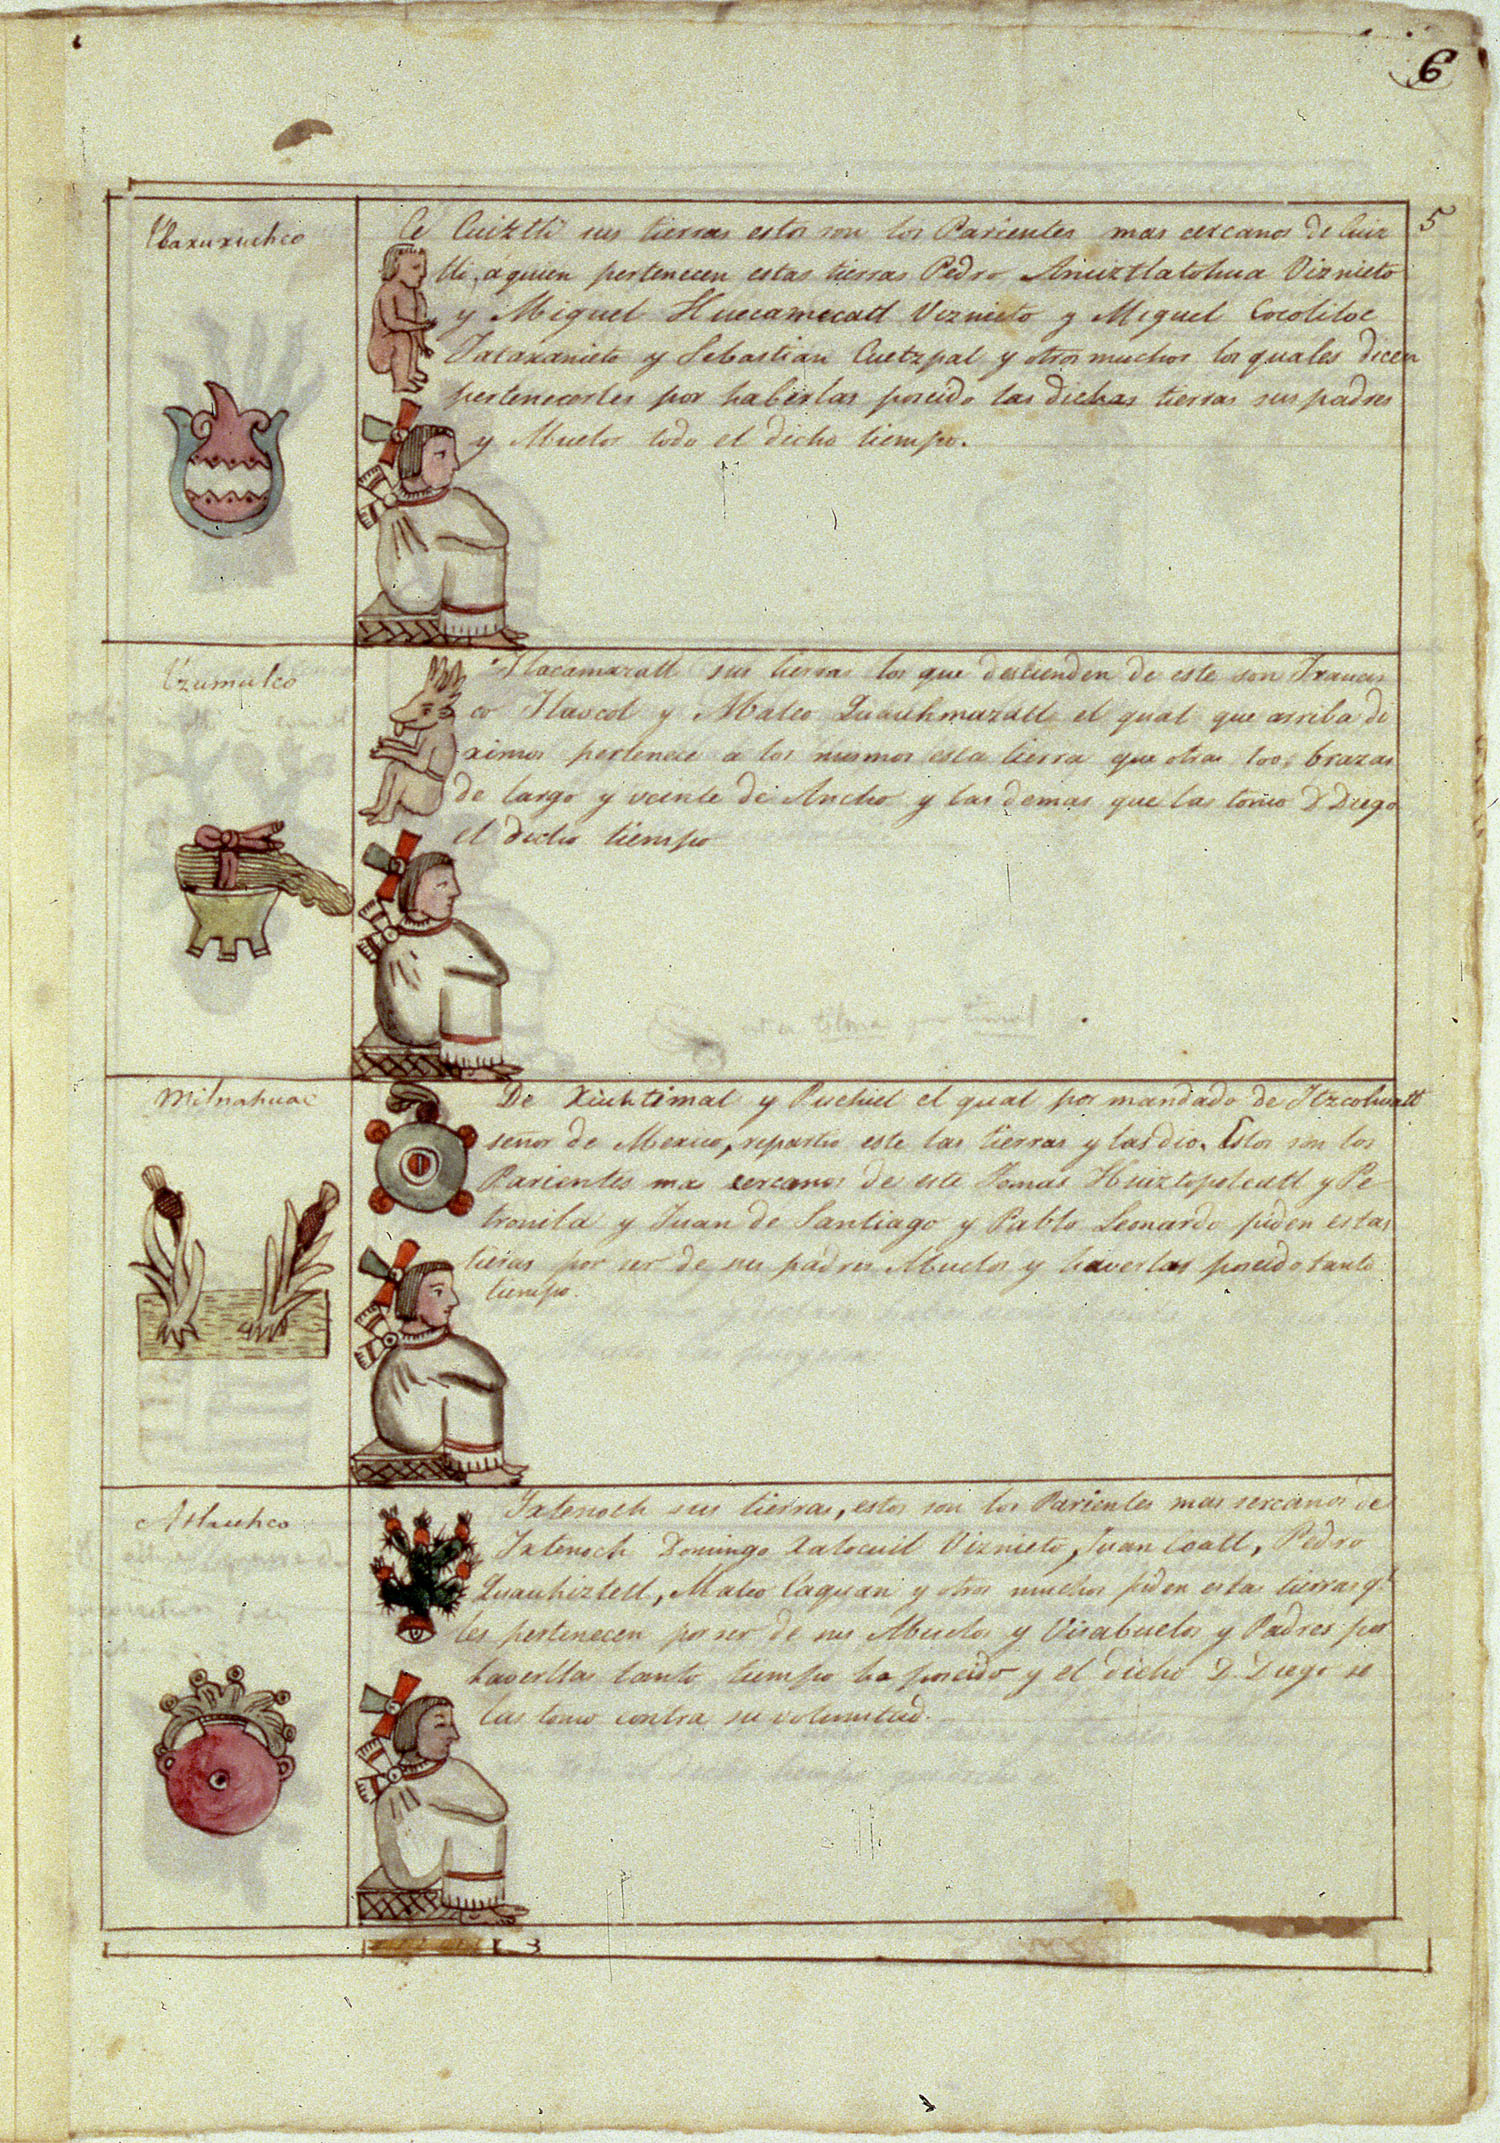 6
5
Tlaxuxiuhco
Ce Cuiztli sus tierras estos son los Parientes mas cercanos de Cuiz
tli, aquien pertenecen estas tierras Pedro Aniuztlatohua Viznieto
y Miguel Huecamecatl Viznieto y Miguel Cocoliloc
Tataranieto y Sebastian Cuetzpal y otros muchos los quales dicen
pertenecerles por haberlas poseido las dichas tierras sus padres
y Abuelos todo el dicho tiempo.
Uzumulco
Tlacamazatl sus tierras los que descienden de este son Francis
co Tlascol y Mateo Quauhmazatl el qual que arriba di
ximos pertenece a los mismos esta tierra que otras 100, brazas
de largo y veinte de Ancho y las demas que las tomo D Diego
el dicho tiempo
Milnahuac
De Xiuhtimal y Puchiel el qual por mandado de Itzcohuatl
señor de Mexico, repartio este las tierras y las dio. Estos son los
Parientes mas cercanos de este Tomas Huiztopolcatl y Pe
tronila y Juan de Santiago y Pablo Leonardo piden estas
tieras por ser de sus padres Abuelos y haverlas poseido tanto
tiempo.
Atlauhco
Ixtenoch sus tierras, estos son los Parientes mas sercanos de
Ixtenoch Domingo Xalocuil Viznieto, Juan Coatl, Pedro
Quauhiztetl, Mateo Caguan y otros muchos piden estas tierras qe
les pertenecen por ser de sus Abuelos y Visabuelos y Padres por
haverllas tanto tiempo ha poseido y el dicho D. Diego se
las tomo contra su voluntad.
3